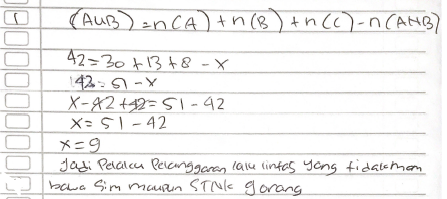 1 (AUB) = n(A) + n(B) + n(C) - n(A∩B)
42 = 30 + 13 + 8 - x
42 = 51 - x
x - 42 + 42 = 51 - 42
x = 51 - 42
x = 9
Jadi Pelaku Pelanggaran lalu lintas yang tidak
bawa Sim maupun STNK 9 orang